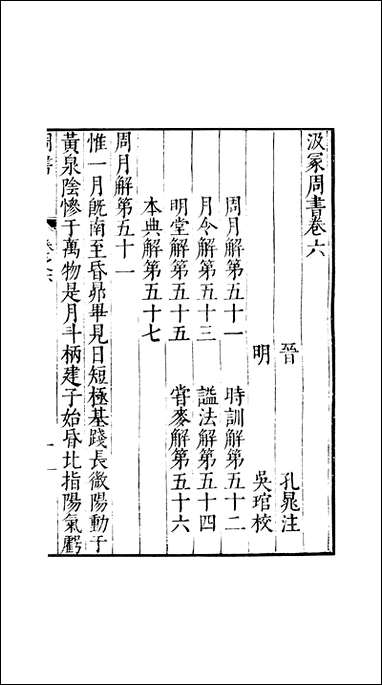 汲冢周書卷六
晉 孔晁注
明 吳琯校
周月解第五十一 時訓解第五十二
月令解第五十三 謚法解第五十四
明堂解第五十五 嘗麥解第五十六
本典解第五十七
周月解第五十一
惟一月既南至昏昴畢見日短極基踐長微陽動于
黃泉陰慘于萬物是月斗柄建子始昏北指陽氣虧